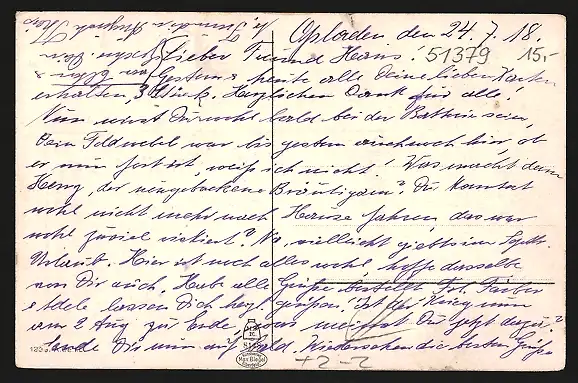 Opladen den 24.7.18.
51379 15,-
Lieber Freund Heini!
Gestern & heute alle Deine lieben Karten
erhalten, 3 Stück. Herzlichen Dank für alle!
Nun wirst Du wohl bald bei der Batterie sein,
Dein Feldwebel war bis gestern auch noch hier, ob
er nun fort ist, weiß ich nicht! Was macht denn
der neugebackene Bräutigam? Du konntest
wohl nicht mehr nach Hause fahren, das war
wohl zuviel riskiert? Na, vielleicht giebts im Sept.
Urlaub. Hier ist noch alles wohl, hoffe dasselbe
von Dir auch. Habe alle Grüße bestellt
lassen Dich herzl. grüßen! Ist der Krieg nun
am 2 Aug zu Ende, was meinst Du jetzt dazu?
Sende Dir nun auf bald. Wiedersehen die besten Grüße